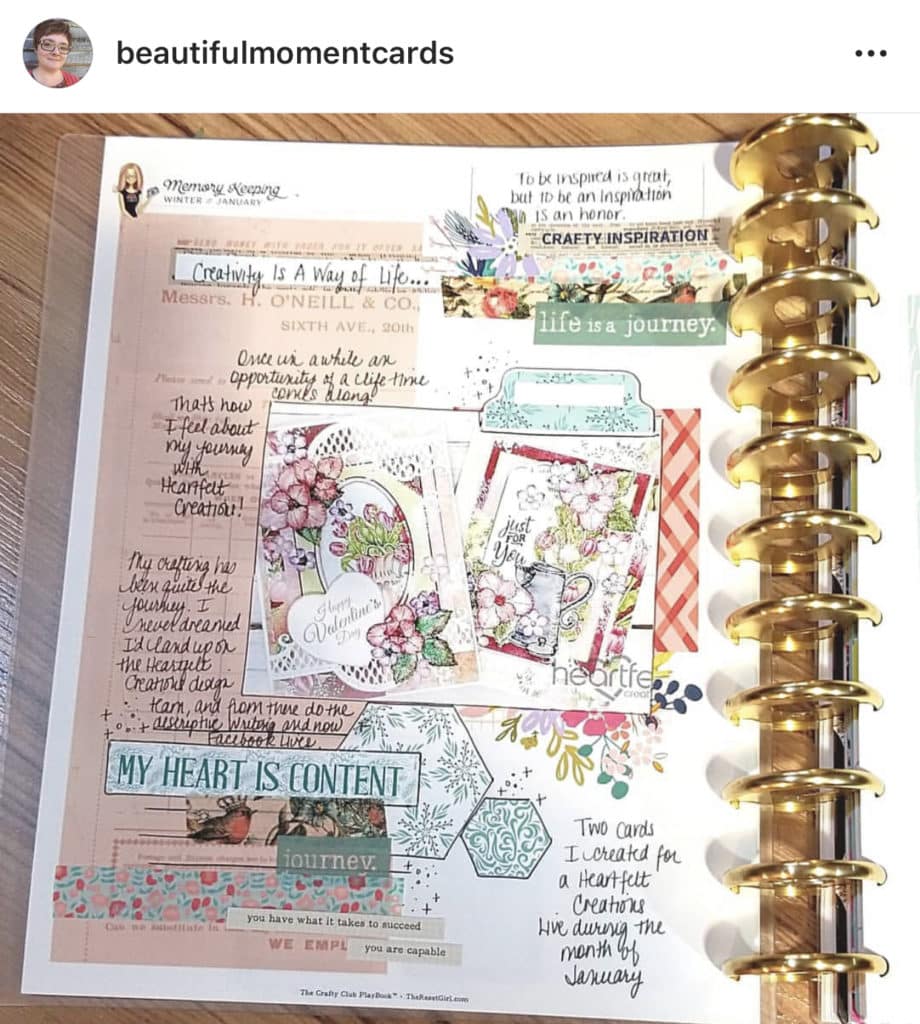 beautifulmomentcards
Memory Keeping
WINTER // JANUARY
To be inspired is great,
but to be an Inspiration
is an honor.
CRAFTY INSPIRATION
SEND MONEY WITH ORDER FOR IT OFTEN
Creativity Is A Way of Life...
Messrs. H. O'NEILL & CO.,
SIXTH AVE., 20th
life is a journey.
Once in a while an
opportunity of a life time
comes along!
Thats how
I feel about
my journey
with
Heartfelt
Creations!
just
FOR
You
Happy
Valentine's
Day
heartfe
creat
My crafting has
been quite the
journey. I
never dreamed
I'd land upon
the Heartfelt
Creations design
team, and from there do the
descriptive writing and now
Facebook Lives.
MY HEART IS CONTENT
journey.
Two Cards
I created for
a Heartfelt
Creations
Live during the
month of
January
you have what it takes to succeed
WE EMPL
you are capable
The Crafty Club PlayBook™ - TheResetGirl.com